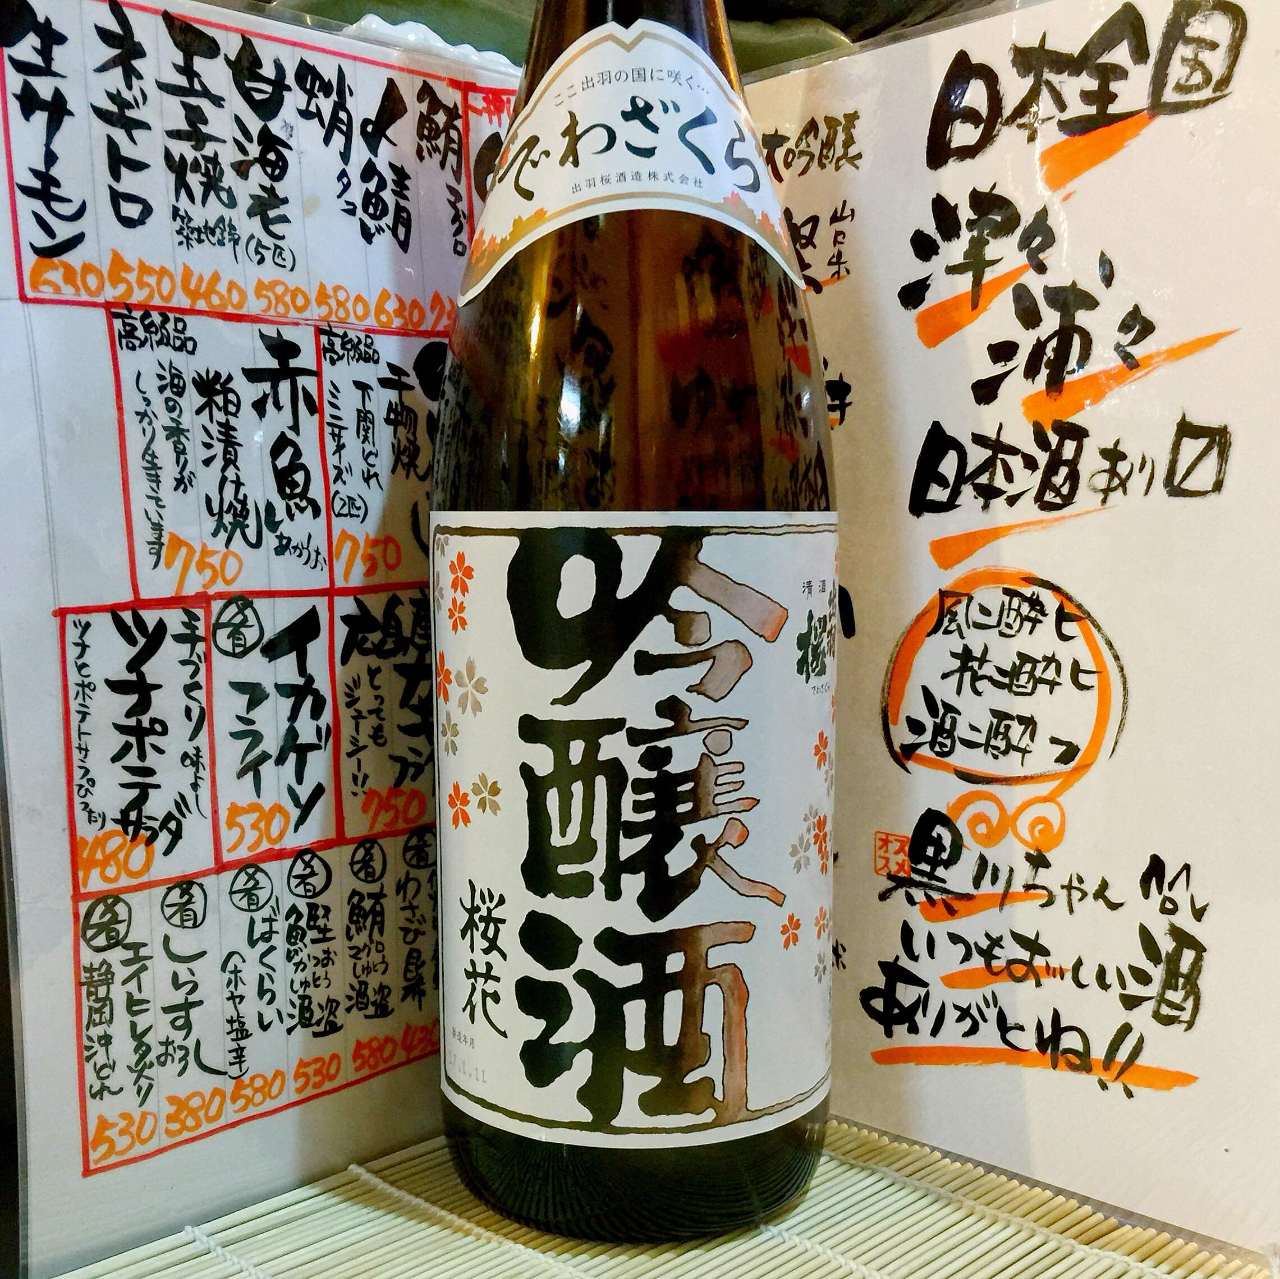 ここ出羽の国に咲く…
でわざくら
出羽桜酒造株式会社
吟醸酒
桜花
製造年月
清酒
日本全国
津々
浦々
日本酒あり〼
風ニ酔ヒ
花ニ酔ヒ
酒ニ酔フ
オススメ
黒川ちゃん
いつもおいしい酒
ありがとね!!
大吟醸
鮪
〆鯖
630
蛸
580
甘海老
(5匹)
580
玉子焼
築地
460
ネギトロ
550
生サーモン
630
高級品
干物焼
下関とれ
ミニサイズ(2匹)
750
赤魚
あかうお
粕漬け焼
750
高級品
海の香りが
しっかり生きています
とっても
ジューシー!!
750
イカゲソ
肴
フライ
530
手づくり
味よし
ツナポテサラダ
ツナとポテトサラぴったり
480
肴
わさび
430
肴
鮪
酒盗
580
肴
鰹
酒盗
530
肴
ばくらい
(ホヤ塩辛)
580
肴
しらすおろし
380
肴
エイヒレ炙り
静岡沖どれ
530